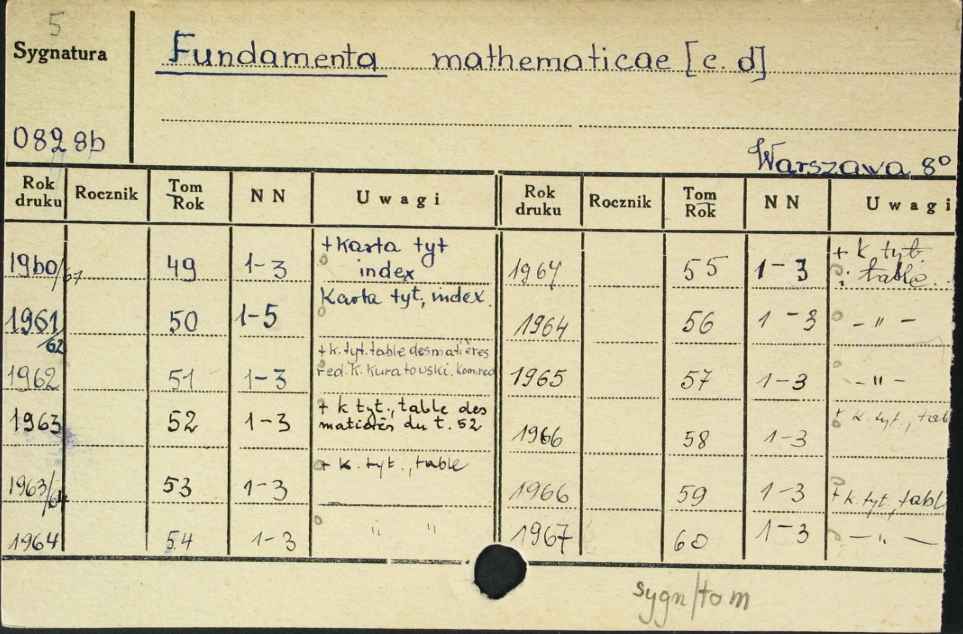 5
Sygnatura
Fundamenta mathematicae [c. d]
0828b
Warszawa 8°
Rok druku Rocznik Tom Rok NN Uwagi Rok druku Rocznik Tom Rok NN Uwagi
1960/61 49 1-3 + Karta tyt index
1961/62 50 1-5 Karta tyt, index.
1962 51 1-3 + k. tyt. table des matières red. K. Kuratowski. kom. red
1963 52 1-3 + k tyt., table des matières du t. 52
1963/64 53 1-3 + k. tyt., table
1964 54 1-3 " "
1964 55 1-3 + k tyt. table..
1964 56 1-3 - " -
1965 57 1-3 - " -
1966 58 1-3 + k. tyt., tabl
1966 59 1-3 + k tyt, tabl
1967 60 1-3 - " -
sygn/tom